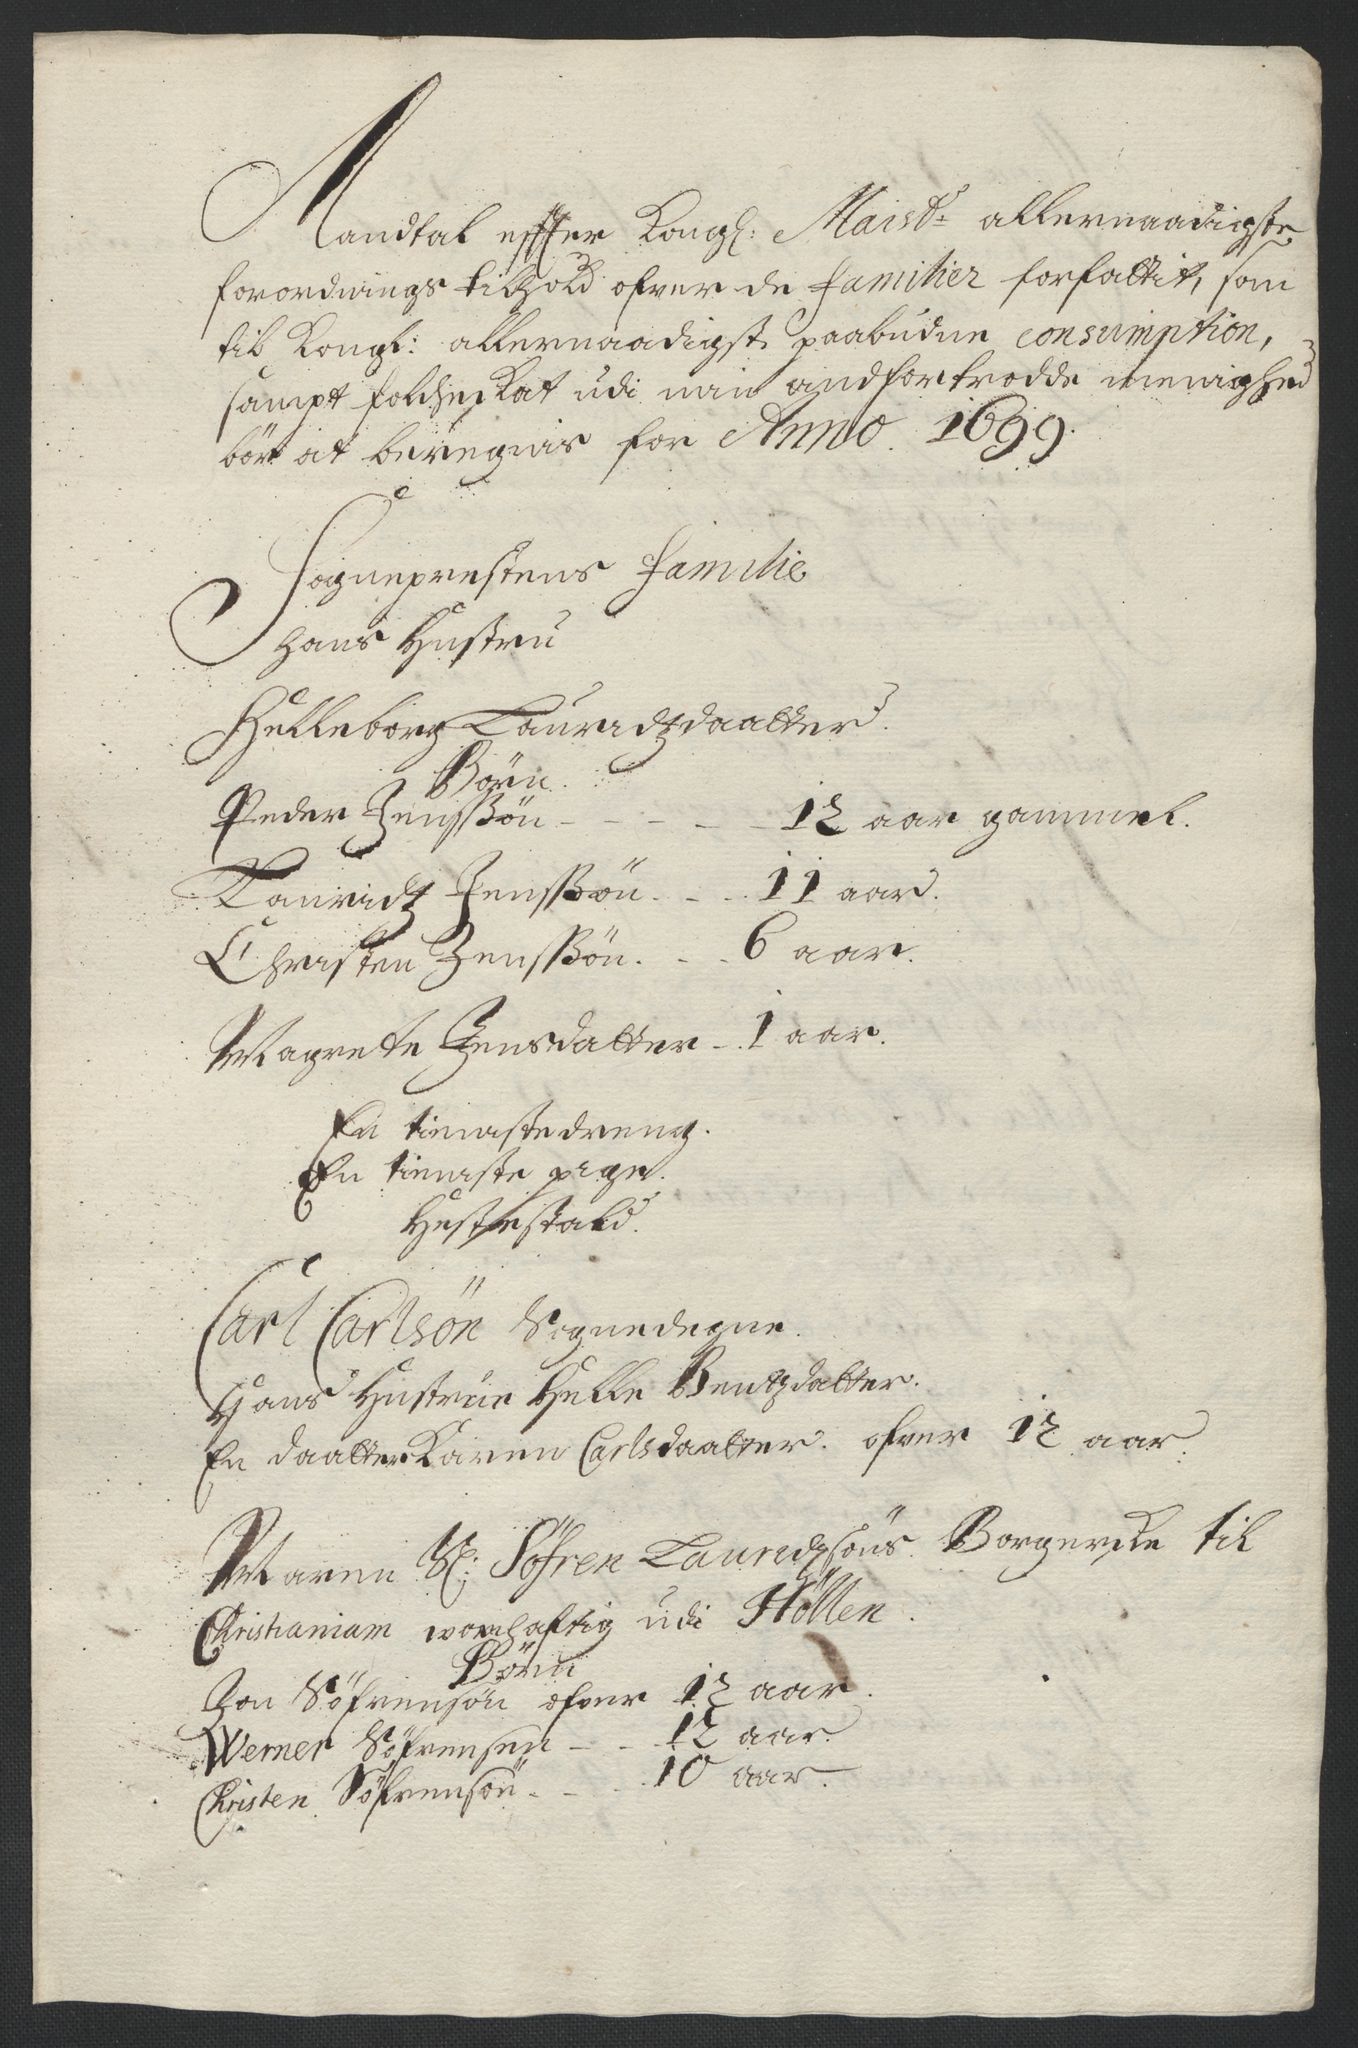 Mandtal effter Kongl: Maists allernaadigste
forordnings tilhold ofver de familier forfattit, som
til Kongl: allernaadigst paabudne consumption,
sampt folcheskat udi min andfortrodde menighed
bör at beregnis for Anno 1699.
Sogneprestens familie
hans Hustru
Helleborg Lauridtzdaatter.
Börn.
Peder Jenssön - - - - - 12 aar gammel.
Lauridtz Jenssön. - - . 11 aar.
Christen Jenssön. - - 6 aar.
Magrete Jensdatter - . 1 aar.
En tieniste dreng.
En tieniste pige.
Hestestald.
Carl Carlsön Sognedegne.
Hans Hustrue Helle Bentzdatter.
En daatter Karen Carlsdaatter. ofver 12 aar.
Maren Sl: Söfren Lauridzsöns Borgerske til
Christianiam woenhaftig udi Hölten.
Börn
Jon Söfrensön ofver 12 aar.
Werner Söfrensen - - 12 aar.
Christen Söfrensön - - 10 aar.